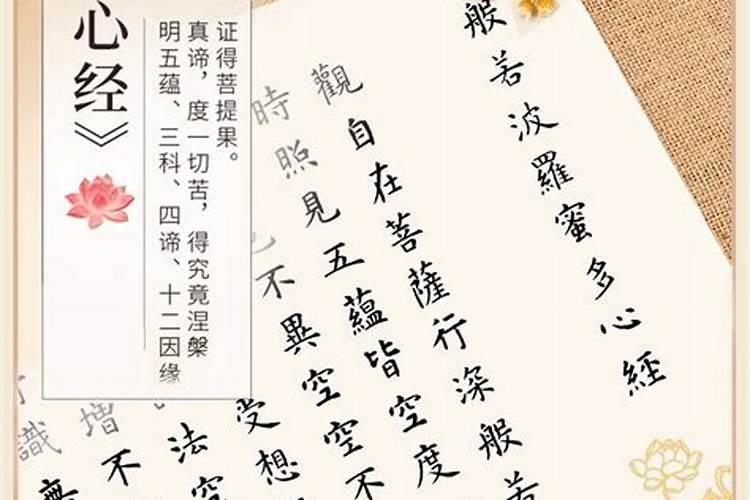 心经》
明五蕴、三科、四谛、十二因缘
真谛，度一切苦，得究竟涅槃
证得菩提果。
般若波羅蜜多心經
觀自在菩薩行深般若
時照見五蘊皆空度
不異空空不
受想
法空
增不
識無